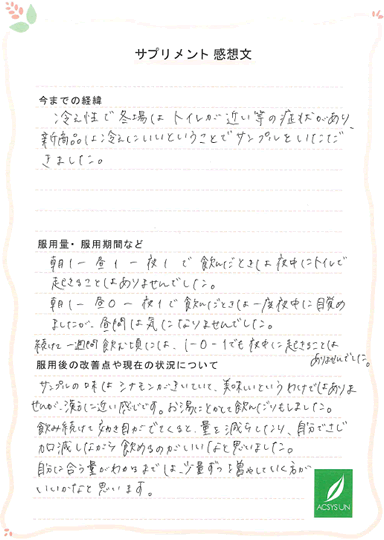 サプリメント 感想文
今までの経緯
冷え性で冬場はトイレが近い等の症状があり、
新商品は冷えにいいということでサンプルをいただ
きました。
服用量・服用期間など
朝1ー昼1ー夜1で飲んだときは夜中にトイレで
起きることはありませんでした。
朝1ー昼0ー夜1で飲んだときは一度夜中に目覚め
ましたが、昼間は気になりませんでした。
続けて一週間飲む頃には、1-0-1でも夜中に起きることは
ありませんでした。
服用後の改善点や現在の状況について
サンプルの味はシナモンがきいていて、美味しいというわけではありま
せんが、漢方に近い感じです。お湯にとかして飲んだりもしました。
飲み続けて効き目がでてくると、量を減らしたり、自分でさじ
加減しながら飲めるのがいいなと思いました。
自分に合う量がわかるまでは、少量ずつを増やしていく方が
いいかなと思います。
ACSYS UN